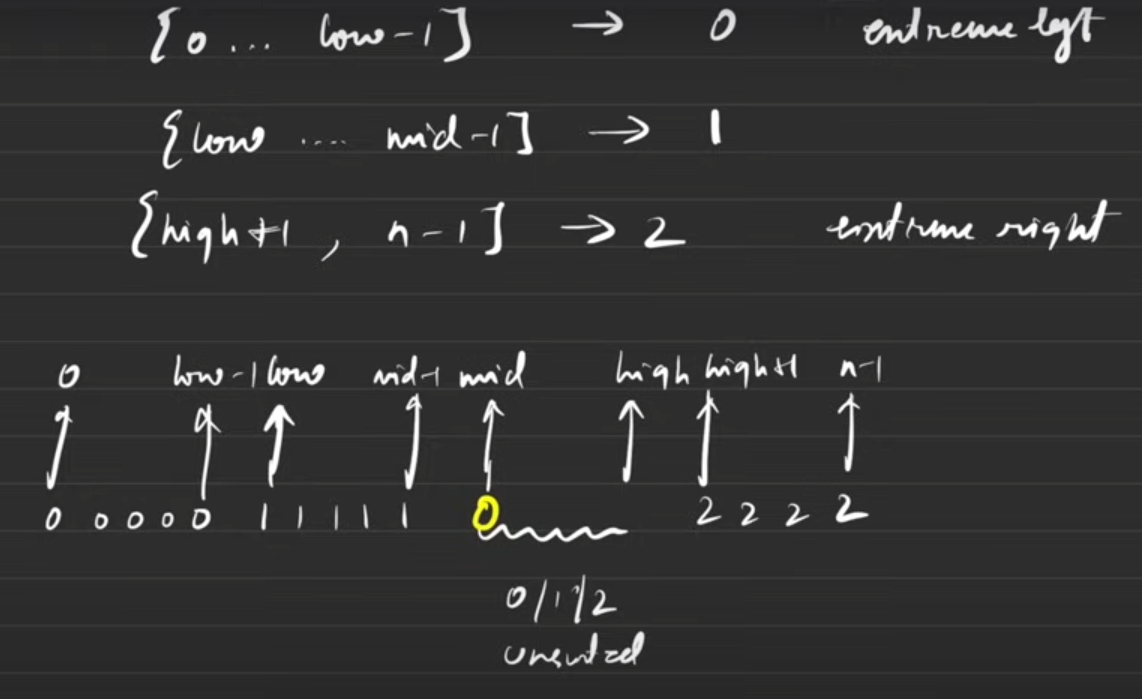 [0 ... low-1] → 0 extreme left
[low .... mid-1] → 1
[high+1, n-1] → 2 extreme right
0 low-1 low mid-1 mid high high+1 n-1
0 0 0 0 0 1 1 1 1 1 0 2 2 2 2
0/1/2
unsorted